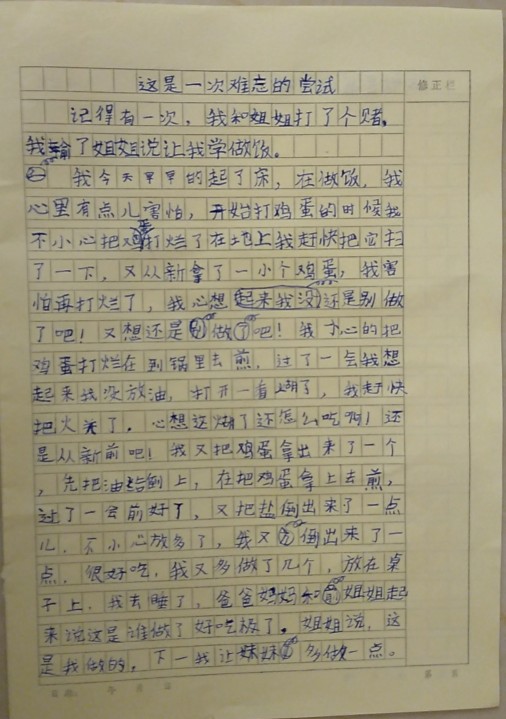 这是一次难忘的尝试
修正栏
记得有一次，我和姐姐打了个赌。
我输了姐姐说让我学做饭。
我今天早早的起了床，在做饭，我
心里有点儿害怕，开始打鸡蛋的时候我
不小心把鸡蛋打烂了在地上我赶快把它扫
了一下，又从新拿了一小个鸡蛋，我害
怕再打烂了，我心想起来我没还是别做
了吧！又想还是做了吧！我小心的把
鸡蛋打烂在到锅里去煎，过了一会我想
起来我没放油，打开一看糊了，我赶快
把火关了。心想这糊了还怎么吃啊！还
是从新煎吧！我又把鸡蛋拿出来了一个
，先把油给倒上，在把鸡蛋拿上去煎，
过了一会煎好了，又把盐倒出来了一点
儿，不小心放多了，我又倒出来了一
点，很好吃，我又多做了几个，放在桌
子上，我去睡了，爸爸妈妈和姐姐起
来说这是谁做了好吃极了。姐姐说，这
是我做的，下一我让妹妹多做一点。